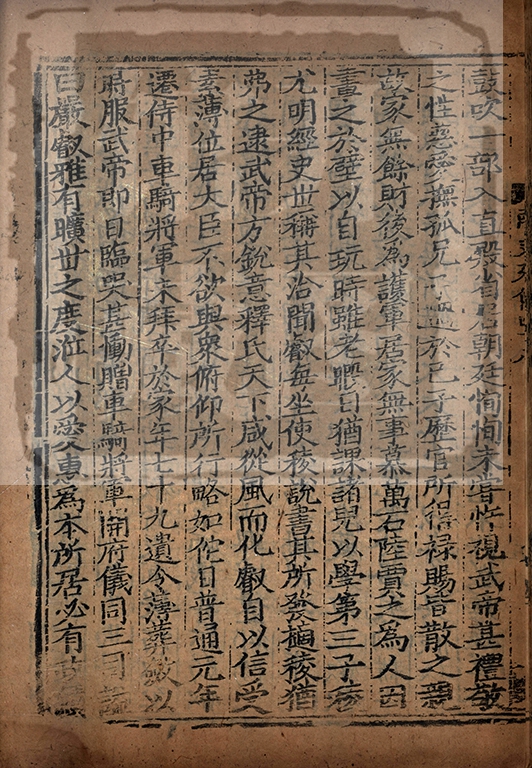 鼓吹一部入直殿省居朝廷恂恂未嘗忤視武帝甚禮敬
之性慈愛撫孤兄子過於己子歷官所得祿賜皆散之親
故家無餘財後為護軍居家無事慕萬石陸賈之為人因
畫之於壁以自玩時雖老暇日猶課諸兒以學第三子稜
尤明經史世稱其洽聞叡每坐使稜說書其所發擿稜猶
弗之逮武帝方銳意釋氏天下咸從風而化叡自以信受
素薄位居大臣不欲與眾俯仰所行略如佗日普通元年
遷侍中車騎將軍未拜卒於家年七十九遺令薄葬斂以
時服武帝即日臨哭甚慟贈車騎將軍開府儀同三司謚
曰嚴叡雅有曠世之度涖人以愛惠為本所居必有政